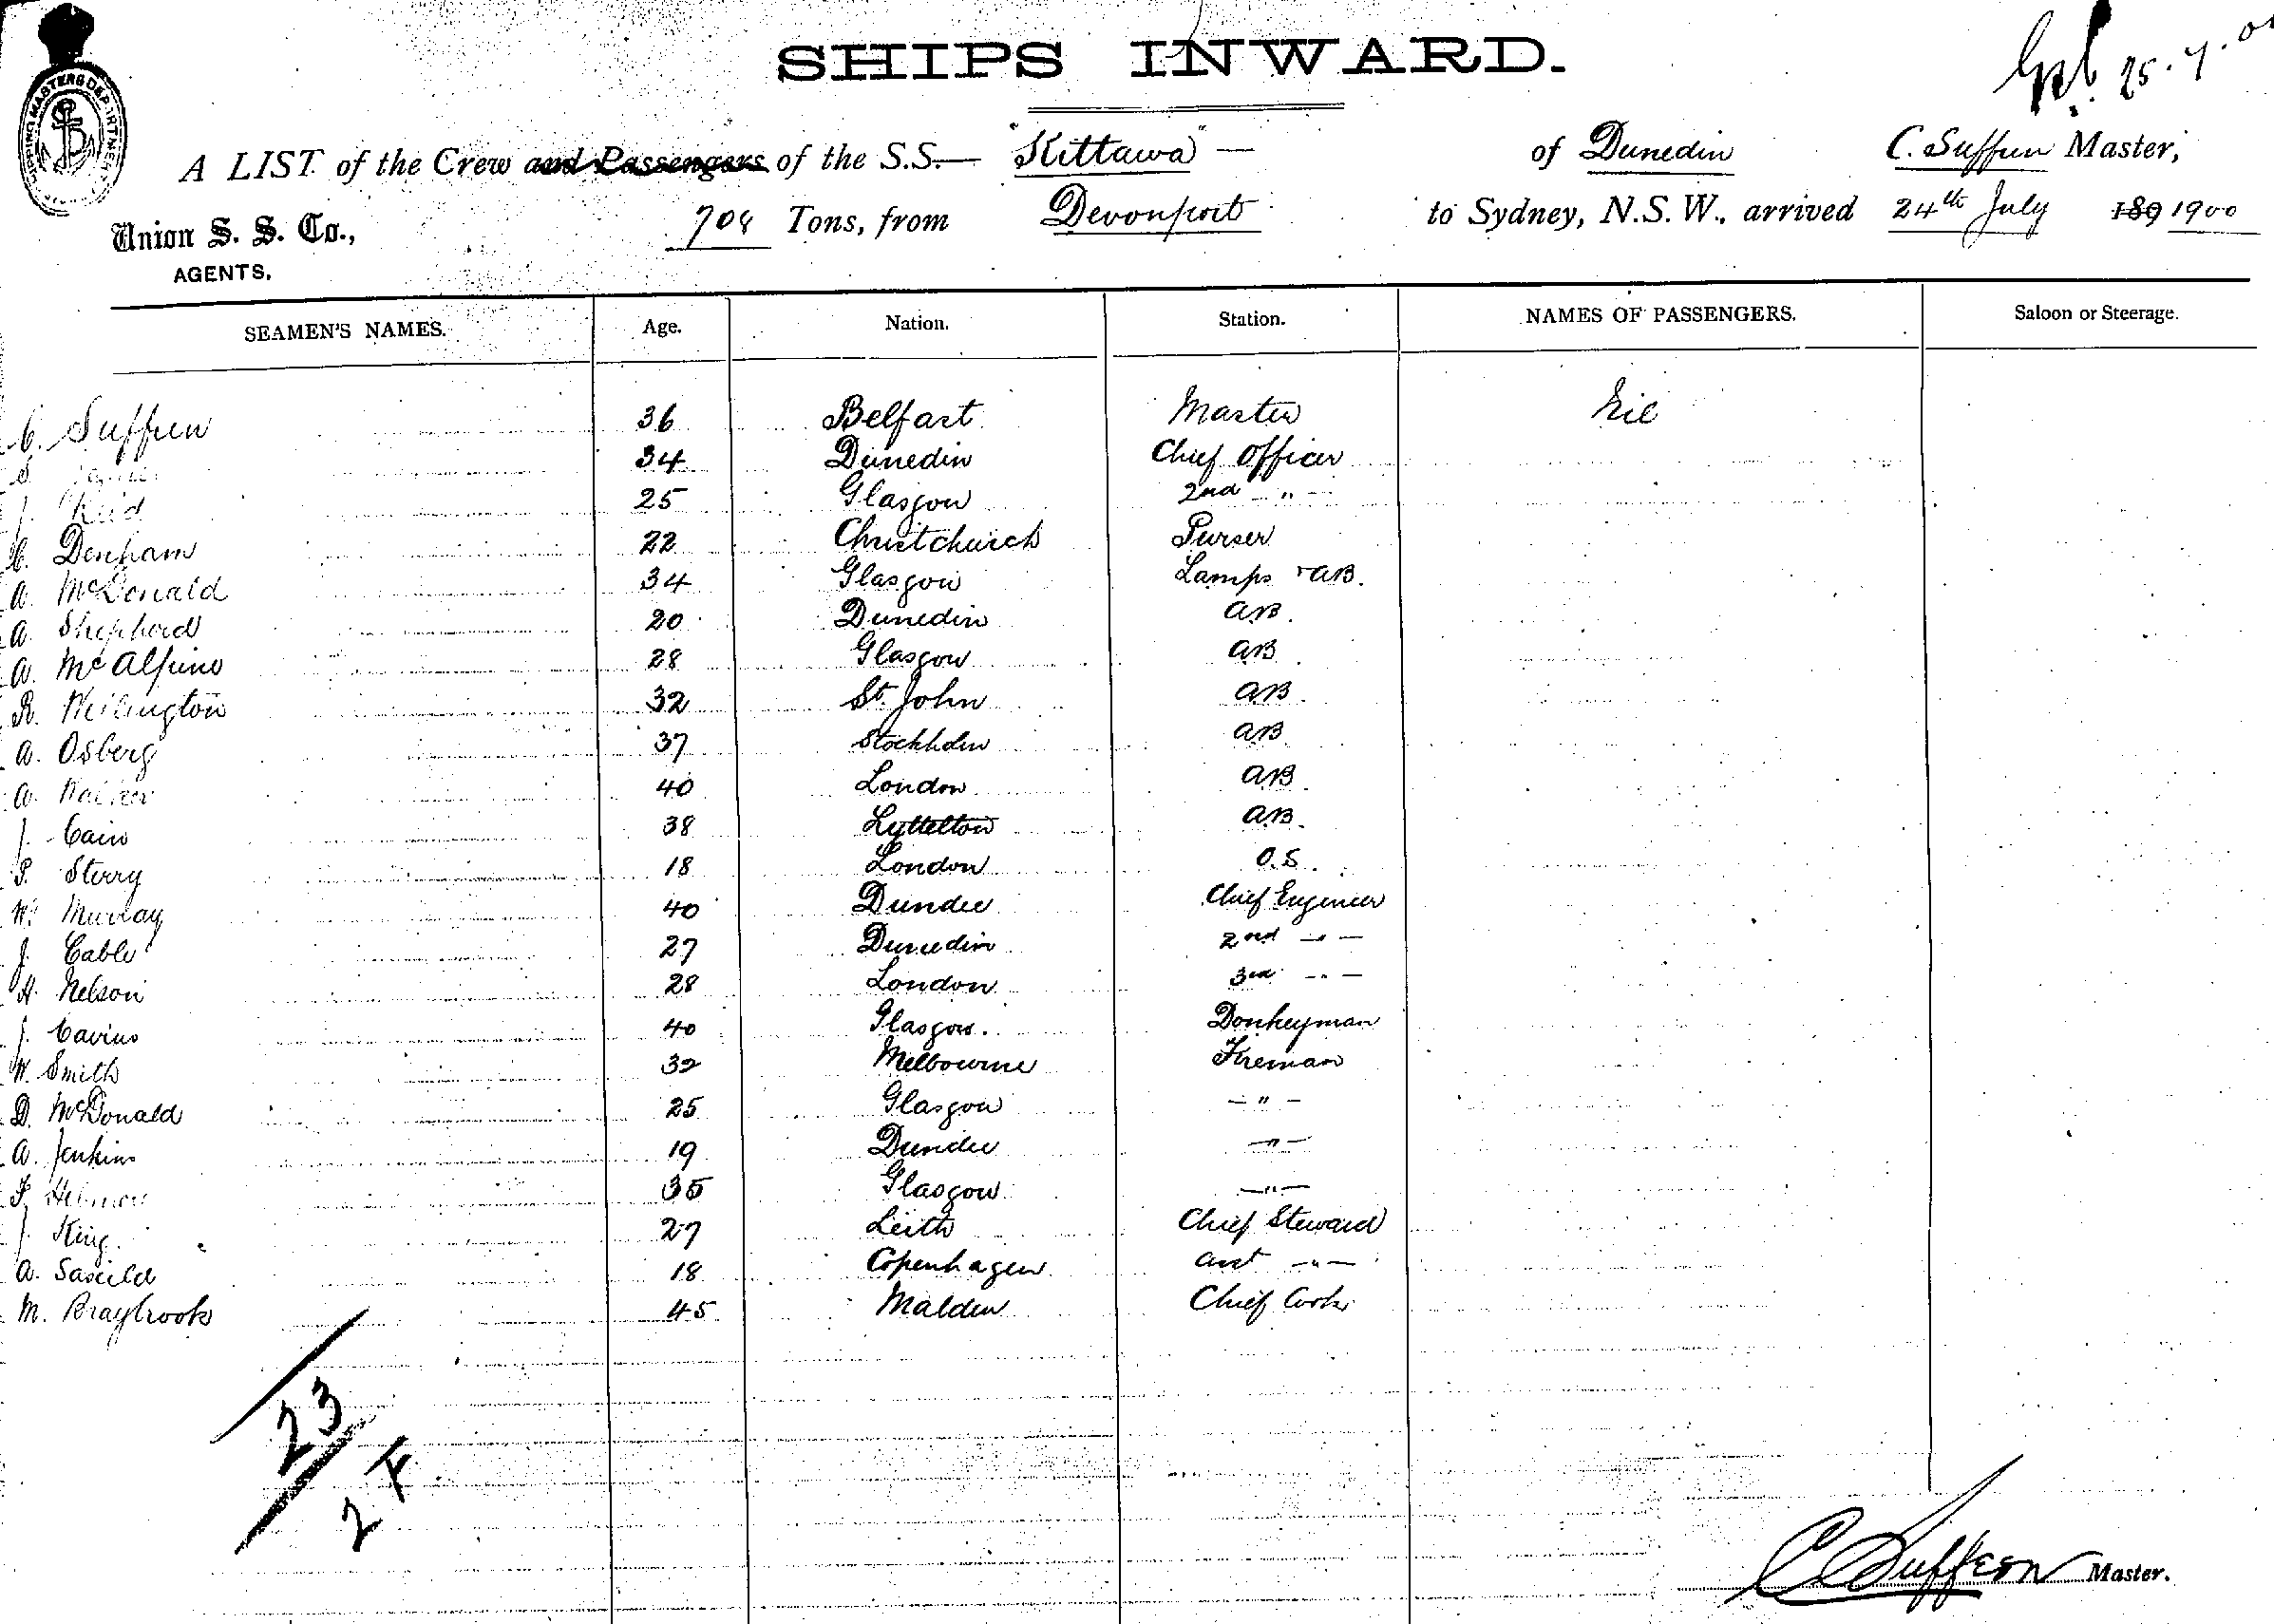 SHIPS INWARD.
25.7.00
SHIPPING MASTERS DEPARTMENT
A LIST of the Crew and Passengers of the S.S. "Kittawa" of Dunedin C. Suffren Master,
Union S. S. Co., 708 Tons, from Devonport to Sydney, N.S.W., arrived 24th July 189 1900
AGENTS.
SEAMEN'S NAMES. Age. Nation. Station. NAMES OF PASSENGERS. Saloon or Steerage.
C. Suffren 36 Belfast Master Nil
34 Dunedin Chief Officer
J. Reid 25 Glasgow 2nd — " —
Denham 22 Christchurch Purser
A. McDonald 34 Glasgow Lamps + AB.
A. Shepherd 20 Dunedin AB.
A. McAlpine 28 Glasgow AB
R. 32 St. John AB
A. Osberg 37 Stockholm AB
A. 40 London AB
J. Cain 38 Lyttelton AB.
P. Sterry 18 London O.S.
W. Murray 40 Dundee Chief Engineer
J. Cable 27 Dunedin 2nd — " —
H. Nelson 28 London 3rd — " —
J. Cavins 40 Glasgow. Donkeyman
W. Smith 32 Melbourne Fireman
D. McDonald 25 Glasgow — " —
A. Jenkins 19 Dundee — " —
F. 35 Glasgow — " —
J. King 27 Leith Chief Steward
A. 18 Copenhagen Asst — " —
M. Braybrook 45 Malden Chief Cook
23
2 F
C Suffren Master.